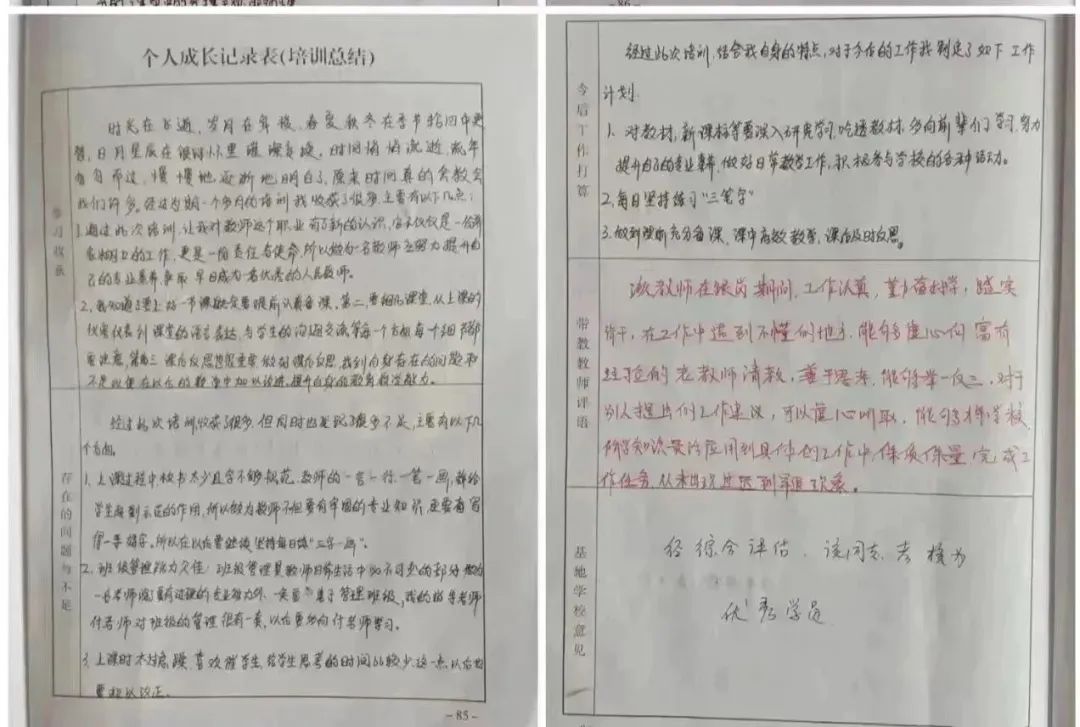 个人成长记录表(培训总结)
学习收获
时光在飞逝，岁月在穿梭，春夏秋冬在季节轮回中更
替，日月星辰在
时间悄悄流逝，流年
慢慢地逐渐地明白了，原来时间真的会教会
我们许多。经过为期一个多月的培训我收获了很多，主要有以下几点：
1.通过此次培训，让我对教师这个职业有了新的认识，它不仅仅是一份
的工作，更是一份责任与使命，所以做为一名教师应努力提升自
己的专业素养，争取早日成为一名优秀的人民教师。
2.我知道了要上好一节课就需要提前认真备课。第二，要细化课堂，从上课的
仪容仪表到课堂的语言表达，与学生的沟通交流等每一个方面每个细节都
要注意，第三，课后反思也很重要，做到课后反思，找到自身存在的问题和
不足以便在以后的教学中加以改进，提升自身的教育教学能力。
存在的问题与不足
经过此次培训收获了很多，但同时也发现了很多不足，主要有以下几
个方面。
1.上课过程中板书太少且字不够规范，教师的一言一行，一笔一画，都给
学生起到示范的作用，所以做为教师不但要有牢固的专业知识，还要有写
一手好字。所以在以后要继续坚持每日练“三字一画”。
2.班级管理能力欠佳：班级管理是教师日常生活中必不可少的部分，做为
一名老师除了要有过硬的专业能力外，一定要善于管理班级，我的指导老师
付老师对班级的管理很有一套，以后要多向付老师学习。
3.上课时不太
喜欢
学生，给学生思考的时间比较少这一点，以后也
要加以改正。
-85-
今后工作打算
经过此次培训，结合我自身的特点，对于今后的工作我制定了如下工作
计划：
1.对教材，新课标等要深入研究学习，吃透教材，多向前辈们学习，努力
提升自己的专业素养，做好日常教学工作，积极参与学校的各种活动。
2.每日坚持练习“三笔字”
3.做到课前充分备课，课中高效教学，课后及时反思。
带教教师评语
该教师在跟岗期间，工作认真，勤奋好学，踏实
肯干，在工作中遇到不懂的地方，能够虚心向富有
经验的老教师请教，善于思考，能够举一反三，对于
别人提出的工作建议，可以虚心听取，能够将学校
所学知识灵活应用到具体的工作中，保质保量完成工
作任务，从未出现过迟到早退现象。
基地学校意见
经综合评估，该同志考核为
优秀学员